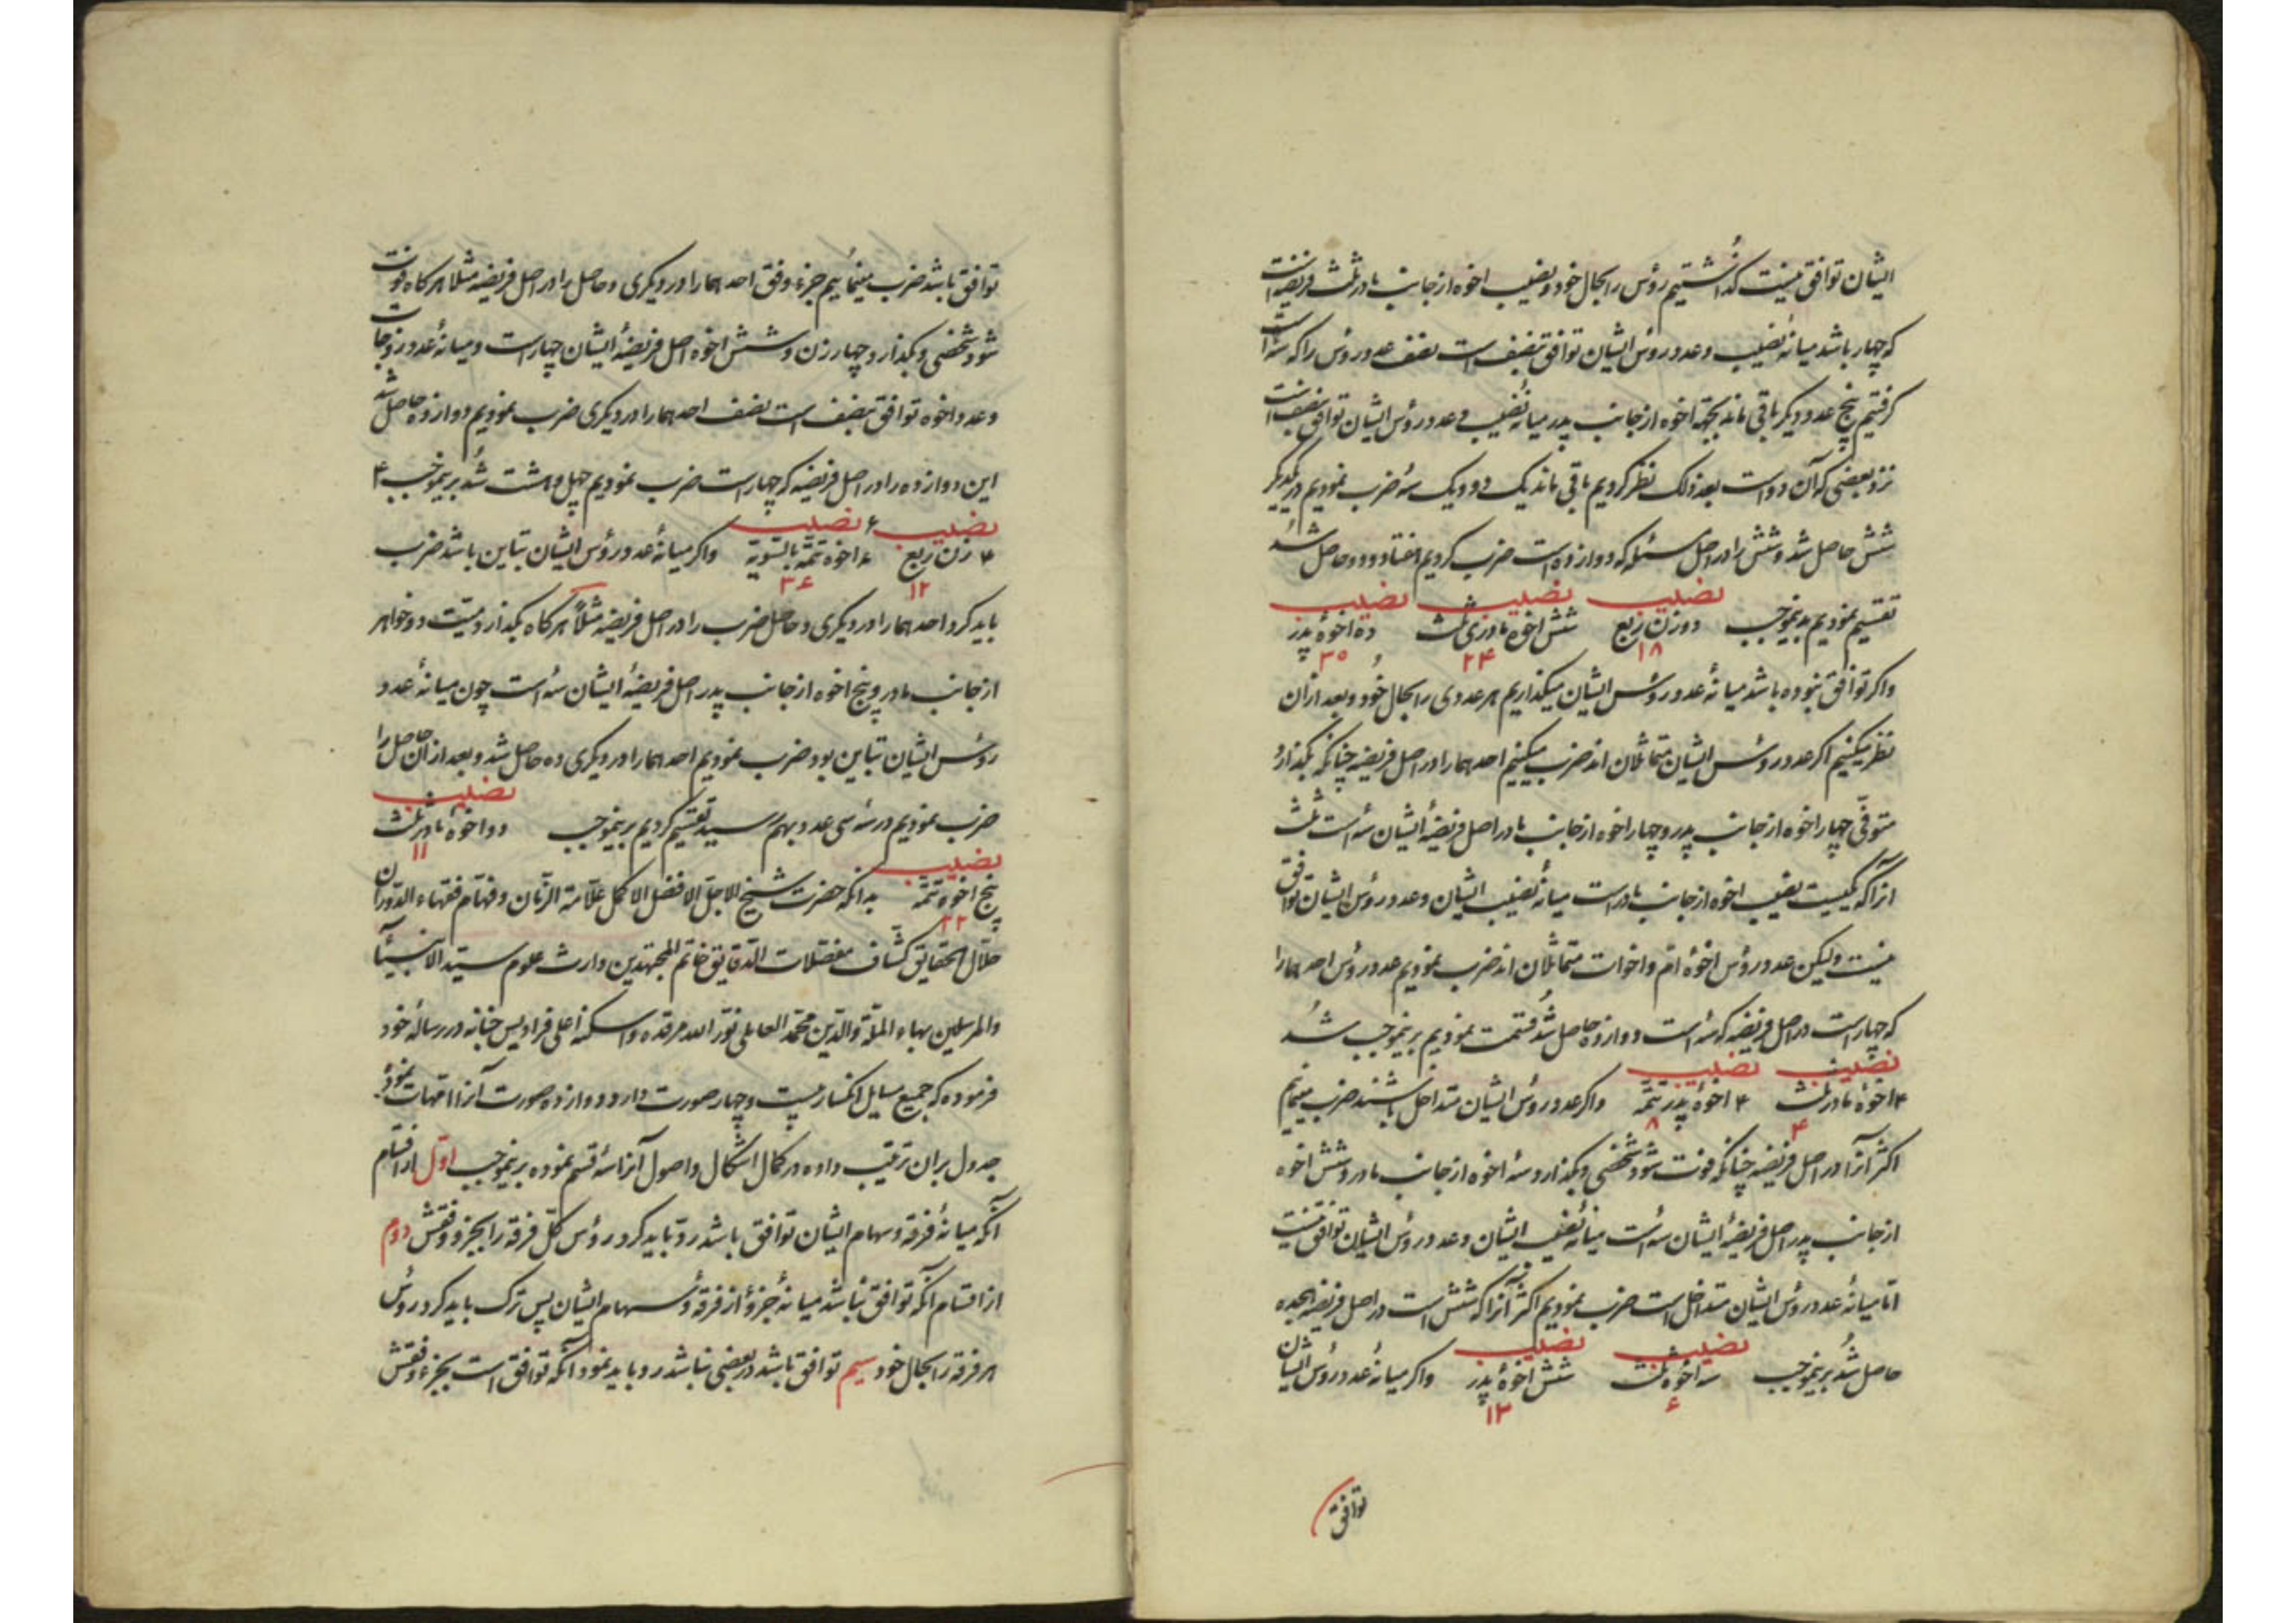 ایشان توافق نیست گذاشتیم رؤس را بحال خود و نصیب اخوه از جانب مادر ثلث فریضه است
که چهار باشد میانهٔ نصیب و عدد رؤس ایشان توافق بنصف است نصف عدد رؤس را که سه است
گرفتیم پنج عدد دیگر باقی ماند بجهة اخوه از جانب پدر میانهٔ نصیب و عدد رؤس ایشان توافق بنصف است
نزد بعضی که آن دو است بعد ذلک نظر کردیم باقی ماند یک دو و یک سه ضرب نمودیم در یکدیگر
شش حاصل شد و شش را در اصل مسئله که دوازده است ضرب کردیم هفتاد و دو حاصل شد
تقسیم نمودیم بدینموجب
نصیب نصیب نصیب
دو زن ربع شش اخوه مادری ثلث ده اخوهٔ پدر
۱۸ ۲۴ ۳۰
و اگر توافق نبوده باشد میانهٔ عدد رؤس ایشان میگذاریم هر عددی را بحال خود و بعد از آن
نظر میکنیم اگر عدد رؤس ایشان متماثلان اند ضرب میکنیم احدهما را در اصل فریضه چنانکه بگذارد
متوفّی چهار اخوه از جانب پدر و چهار اخوه از جانب مادر اصل فریضهٔ ایشان سه است ثلث
آنرا که یکیست نصیب اخوه از جانب مادر است میانهٔ نصیب ایشان و عدد رؤس ایشان توافق
نیست ولیکن عدد رؤس اخوهٔ ام و اخوات متماثلان اند ضرب نمودیم عدد رؤس احدهما را
که چهار است در اصل فریضه که سه است دوازده حاصل شد قسمت نمودیم برینموجب شد
نصیب نصیب
۴ اخوهٔ مادر ثلث ۴ اخوهٔ پدر تتمّه و اگر عدد رؤس ایشان متداخل باشند ضرب مینمائیم
۴ ۸
اکثر آنرا در اصل فریضه چنانکه فوت شود شخصی و بگذارد سه اخوه از جانب مادر و شش اخوه
از جانب پدر اصل فریضهٔ ایشان سه است میانهٔ نصیب ایشان و عدد رؤس ایشان توافق نیست
امّا میانهٔ عدد رؤس ایشان متداخل است ضرب نمودیم اکثر آنرا که شش است در اصل فریضه هجده
نصیب نصیب
حاصل شد برینموجب سه اخوه ثلث شش اخوهٔ پدر و اگر میانهٔ عدد رؤس ایشان
۶ ۱۲
توافق
توافق باشد ضرب مینمائیم جزء وفق احدهما را در دیگری و حاصل را در اصل فریضه مثلا هر گاه فوت
شود شخصی و بگذارد چهار زن و شش اخوه اصل فریضهٔ ایشان چهار است و میانهٔ عدد زوجات
و عدد اخوه توافق بنصف است نصف احدهما را در دیگری ضرب نمودیم دوازده حاصل شد
این دوازده را در اصل فریضه که چهار است ضرب نمودیم چهل و هشت شد برینموجب ۴
نصیب ۶ نصیب
۴ زن ربع ۶ اخوه تتمّه بالتسویة و اگر میانهٔ عدد رؤس ایشان تباین باشد ضرب
۱۲ ۳۶
باید کرد احدهما را در دیگری و حاصل ضرب را در اصل فریضه مثلاً هر گاه بگذارد میّت دو خواهر
از جانب مادر و پنج اخوه از جانب پدر اصل فریضهٔ ایشان سه است چون میانهٔ عدد
رؤس ایشان تباین بود ضرب نمودیم احدهما را در دیگری ده حاصل شد و بعد از آن حاصل را
نصیب
ضرب نمودیم در سه سی عدد بهم رسید تقسیم کردیم برینموجب دو اخوهٔ مادر ثلث
نصیب ۱۱
پنج اخوه تتمّه بدانکه حضرت شیخ الاجلّ الافضل الاکمل علّامة الزّمان و فهّام فقهاء الدّوران
۲۲
حلّال الحقایق کشّاف معضلات الدّقایق خاتم المجتهدین وارث علوم سیّد الانبیآء
والمرسلین بهاء الملّة والدّین محمّد العاملی نوّر الله مرقده و اسکنه اعلی فرادیس جنانه در رسالهٔ خود
فرموده که جمیع مسایل انکسار بیست و چهار صورت دارد و دوازده صورت آنرا امّهات نموده
جدول بران ترتیب داده در کمال اشکال و اصول آنرا سه قسم نموده برینموجب اوّل از اقسام
آنکه میانهٔ فرقه و سهام ایشان توافق باشد ردّ باید کرد رؤس کلّ فرقه را بجزو وفقش دوم
از اقسام آنکه توافق نباشد میانهٔ جزؤ از فرقه و سهام ایشان پس ترک باید کرد رؤس
هر فرقه را بحال خود سیم توافق باشد در بعضی نباشد رد باید نمود آنکه توافق است بجزء وفقش